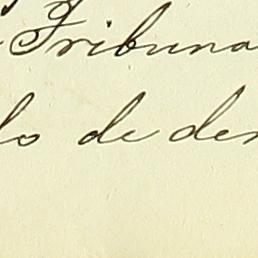 Tribuna
lo de der